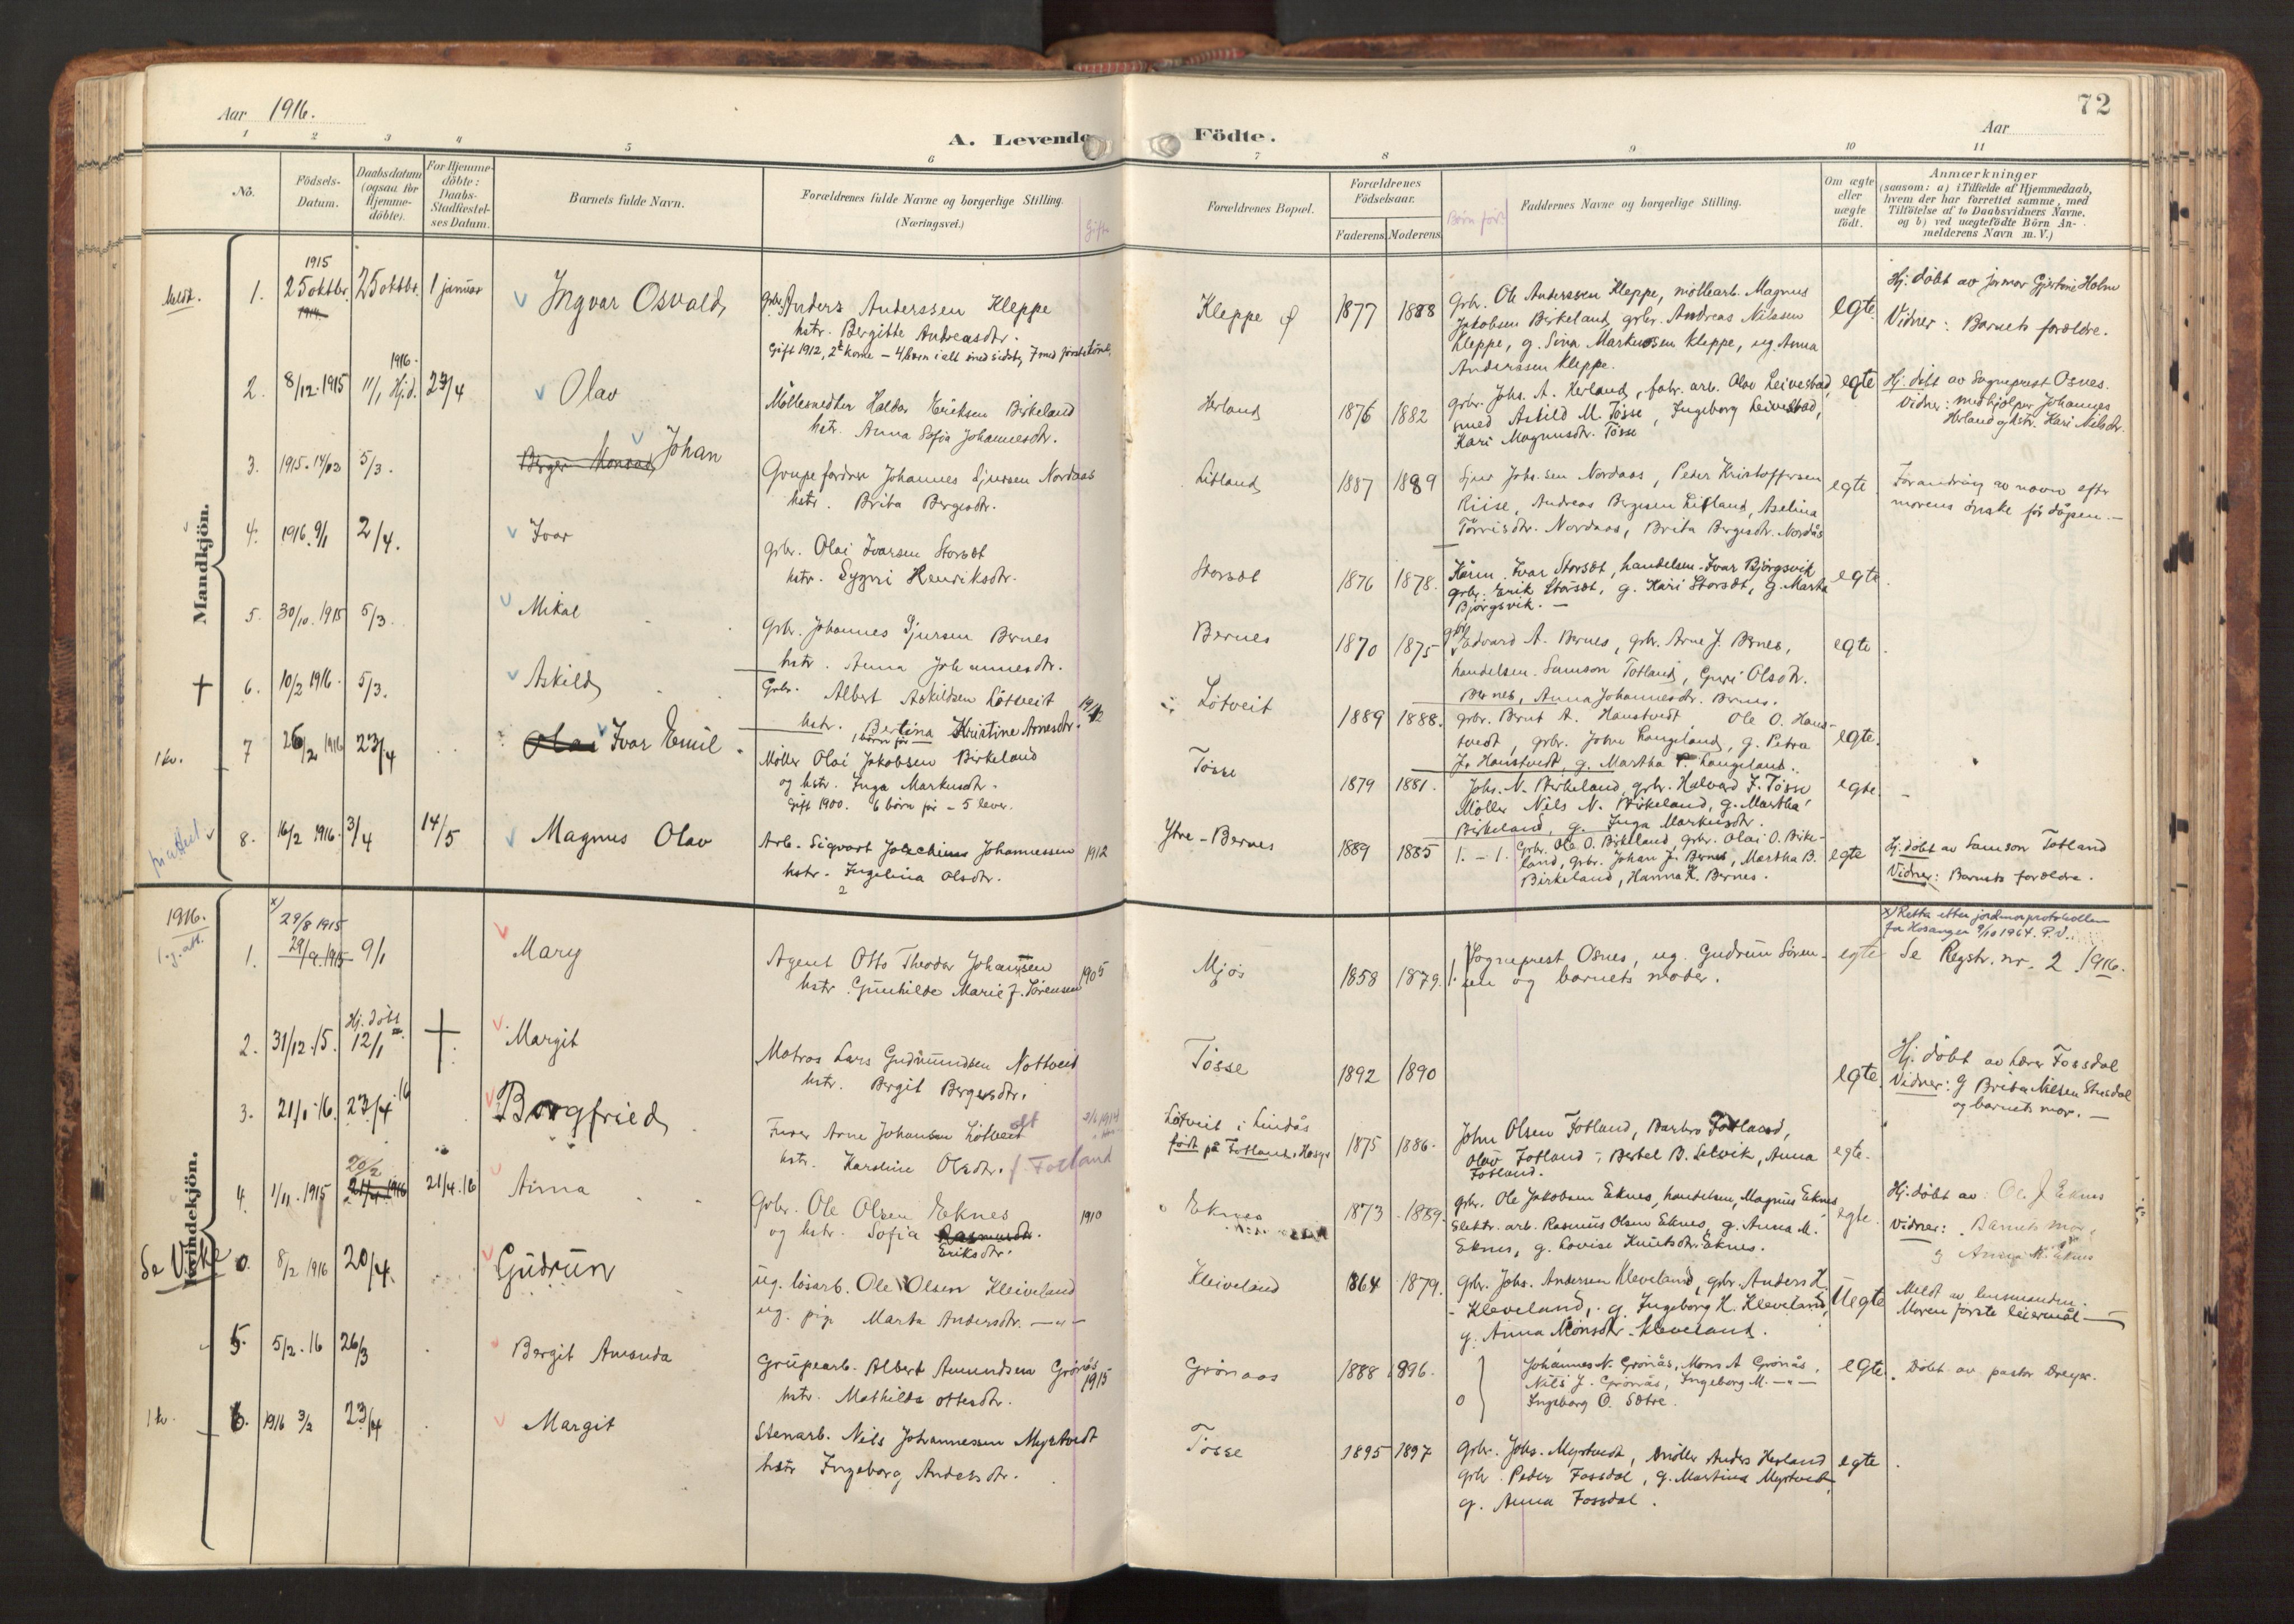 Aar 1916.
72
Aar
A. Levende Födte.
1 2 3 4 5 6 7 8 9 10 11
No.
Födsels-
Datum.
Daabsdatum
(ogsaa for
Hjemme-
döbte).
For Hjemme-
döbte:
Daabs-
Stadfæstel-
ses Datum.
Barnets fulde Navn.
Forældrenes fulde Navne og borgerlige Stilling.
(Næringsvei.)
Gift
Forældrenes Bopæl.
Forældrenes
Födselsaar.
Faderens. Moderens.
Börn før.
Faddernes Navne og borgerlige Stilling.
Om ægte
eller
uægte
födt.
Anmærkninger
(saasom: a) i Tilfælde af Hjemmedaab,
hvem der har forrettet samme, med
Tilföielse af to Daabsvidners Navne,
og b) ved uægtefödte Börn An-
melderens Navn m. V.)
Mandkjön.
Meldt. 1. 1915 25 oktbr. 1914. 25 oktbr. 1 januar Ingvar Osvald,
grbr. Anders Anderssen Kleppe
hstr. Bergitte Andreasdtr.
Gift 1912, 2t kone – 4 børn i alt med sidste, 7 med første kone,
Kleppe 1877 1888
Grbr. Ole Anderssen Kleppe, möllearb. Magnus
Jakobsen Birkeland, grbr. Andreas Nilssen
Kleppe, g. Sina Markussen Kleppe, ug. Anna
Anderssen Kleppe.
egte.
Hj. døbt av jormor Gjertine Holm
Vidner: Barnets forældre.
2. 8/12. 1915 1916. 11/1 Hj.d. 23/4 Olav
Møllesmedter Haldor Eriksen Birkeland
hstr. Anna Sofia Johannesdtr.
Herland 1876 1882
grbr. Johs. A. Herland, fabr. arb. Olav Leivestad,
smed Askild M. Tösse, Ingeborg Leivestad,
Kari Magnusdtr. Tösse
egte
Hj. døbt av Sogneprest Osnes.
Vidner: medhjelper Johannes
Herland og hstr. Kari Nilsdtr.
3. 1915. 14/12 5/3. Birger Konrad, Johan
Grupefordrer Johannes Sjursen Nordaas
hstr. Brita Bergesdtr.
Litland 1887 1889
Sjur Johs.sen Nordaas, Peder Kristoffersen
Riise, Andreas Bergesen Litland, Aselina
Tørrisdtr. Nordaas, Brita Bergesdtr. Nordås
egte.
Forandring av navn efter
morens ønske før dåpen. –
4. 1916. 9/1 2/4. Ivar
grbr. Olai Ivarsen Storset
hstr. Sygni Henriksdtr.
Storset 1876 1878.
Kårm. Ivar Storset, handelsm. Ivar Bjørgsvik
grbr. Erik Storset, g. Kari Storset, g. Marta
Bjørgsvik. –
egte.
5. 30/10. 1915 5/3. Mikal
Grbr. Johannes Sjursen Bernes
hstr. Anna Johannesdtr.
Bernes 1870 1875
grbr. Edvard A. Bernes, grbr. Arne J. Bernes,
handelsm. Samson Totland, Guri Olsdtr.
Bernes, Anna Johannesdtr. Bernes.
egte.
† 6. 10/2 1916. 5/3. Askild,
Grbr. Albert Askildsen Lötveit
hstr. Bertina Kristine Arnesdtr. 1912
1 børn før
Lötveit 1889 1888.
grbr. Bernt A. Haustvedt, Ole O. Haus-
tvedt, grbr. John Langeland, g. Petra
J. Haustvedt, g. Martha P. Langeland.
egte.
1 kv. 7 26/2 1916 23/4 Olai Ivar Emil
Möller Olai Jakobsen Birkeland
og hstr. Inga Markusdtr.
Gift 1900. 6 børn før – 5 lever.
Tösse 1879 1881.
Johs. N. Birkeland, grbr. Halvard J. Tösse
Möller Nils N. Birkeland, g. Martha
Birkeland, g. Inga Markusdtr.
egte. –
8. 16/2 1916. 3/4 14/5 Magnus Olav
Arb. Sigvart Joackimss Johannessen 1912
hstr. Ingelina Olsdtr.
2
Ytre-Bernes 1889 1885
1. – 1. Grbr. Ole O. Birkeland, grbr. Olai O. Birke-
land, grbr. Johan J. Bernes, Martha B.
Birkeland, Hanna K. Bernes.
egte
Hj. døbt av Samson Totland
Vidner: Barnets forældre.
Kvindekjön.
1916.
1.g. att.
1. x) 29/8 1915 29/9. 1915 9/1 Mary
Agent Otto Theodor Johanssen
hstr. Gunhilde Marie f. Sørensen 1905
Mjøs 1858 1879.
Sogneprest Osnes, ug. Gudrun Sören-
sen og barnets moder.
egte
x) Retta etter jordmorprotokollen
for Hosanger 9/10 1964. P.V.
Se Registr. nr. 2 1916.
2. 31/12. 15. Hj. døbt 12/1 † Margit
Matros Lars Gudmundsen Nottveit
hstr. Bergit Bergesdtr.
Tösse 1892 1890
egte.
Hj. døbt av Lærer Fossdal
Vidner: g Brita Nilsen Stusdal
og barnets mor. –
3. 21/1 16. 23/4 16 Borgfried,
Furer Arne Johansen Lötveit
hstr. Karoline Olsdtr. f. Fotland
Lötveit i Lindås
født på Fotland, Hosgr. 1875 1886.
John Olsen Fotland, Barbro Fotland,
Olav Fotland, Bertel B. Leivik, Anna
Fotland.
egte.
4. 1/11. 1915 20/2 21/4 1916 21/4. 16 Anna
Grbr. Ole Olsen Eknes 1910
og hstr. Sofia Rasmusdtr.
Eriksdtr.
Eknes 1873 1889.
grbr. Ole Jakobsen Eknes, handelsm. Magnus Eknes
Elektr. arb. Rasmus Olsen Eknes, g. Anna M.
Eknes, g. Lovise Knutsdtr. Eknes.
egte.
Hj. døbt av: Ole J Eknes
Vidner: Barnets mor,
g Anna M. Eknes
Se Vike 0. 8/2 1916 20/4. Gudrun
ug. løsarb. Ole Olsen Kleiveland
ug. pige Marta Andersdtr. —"—
Kleiveland 1864 1879.
Grbr. Johs. Andersen Kleveland, grbr. Anders K.
Kleveland, g. Ingeborg H. Kleveland,
g. Anna Monsdtr. Kleveland.
Uegte
Meldt av lensmanden.
Moren første leiermål —
5. 5/2. 16 26/3 Bergit Amanda
Grupearb. Albert Amundsen Grönås 1915
hstr. Mathilde Ottesdtr.
Grönaas 1888 1896.
o
Johannes N. Grönås, Mons A Grönås,
Nils J. Grönås, Ingeborg M. —"—
Ingeborg O. Sætre.
egte.
Døbt av pastor Dreyer.
1 kv. 6. 1916 3/2 23/4 Margit
Stenarb. Nils Johannessen Myrtvedt
hstr Ingeborg Andersdtr.
Tösse 1895 1897
grbr. Johs. Myrtvedt, möller Anders Herland
grbr. Peder Fossdal, g. Martina Myrtvedt,
g. Anna Fossdal.
egte.